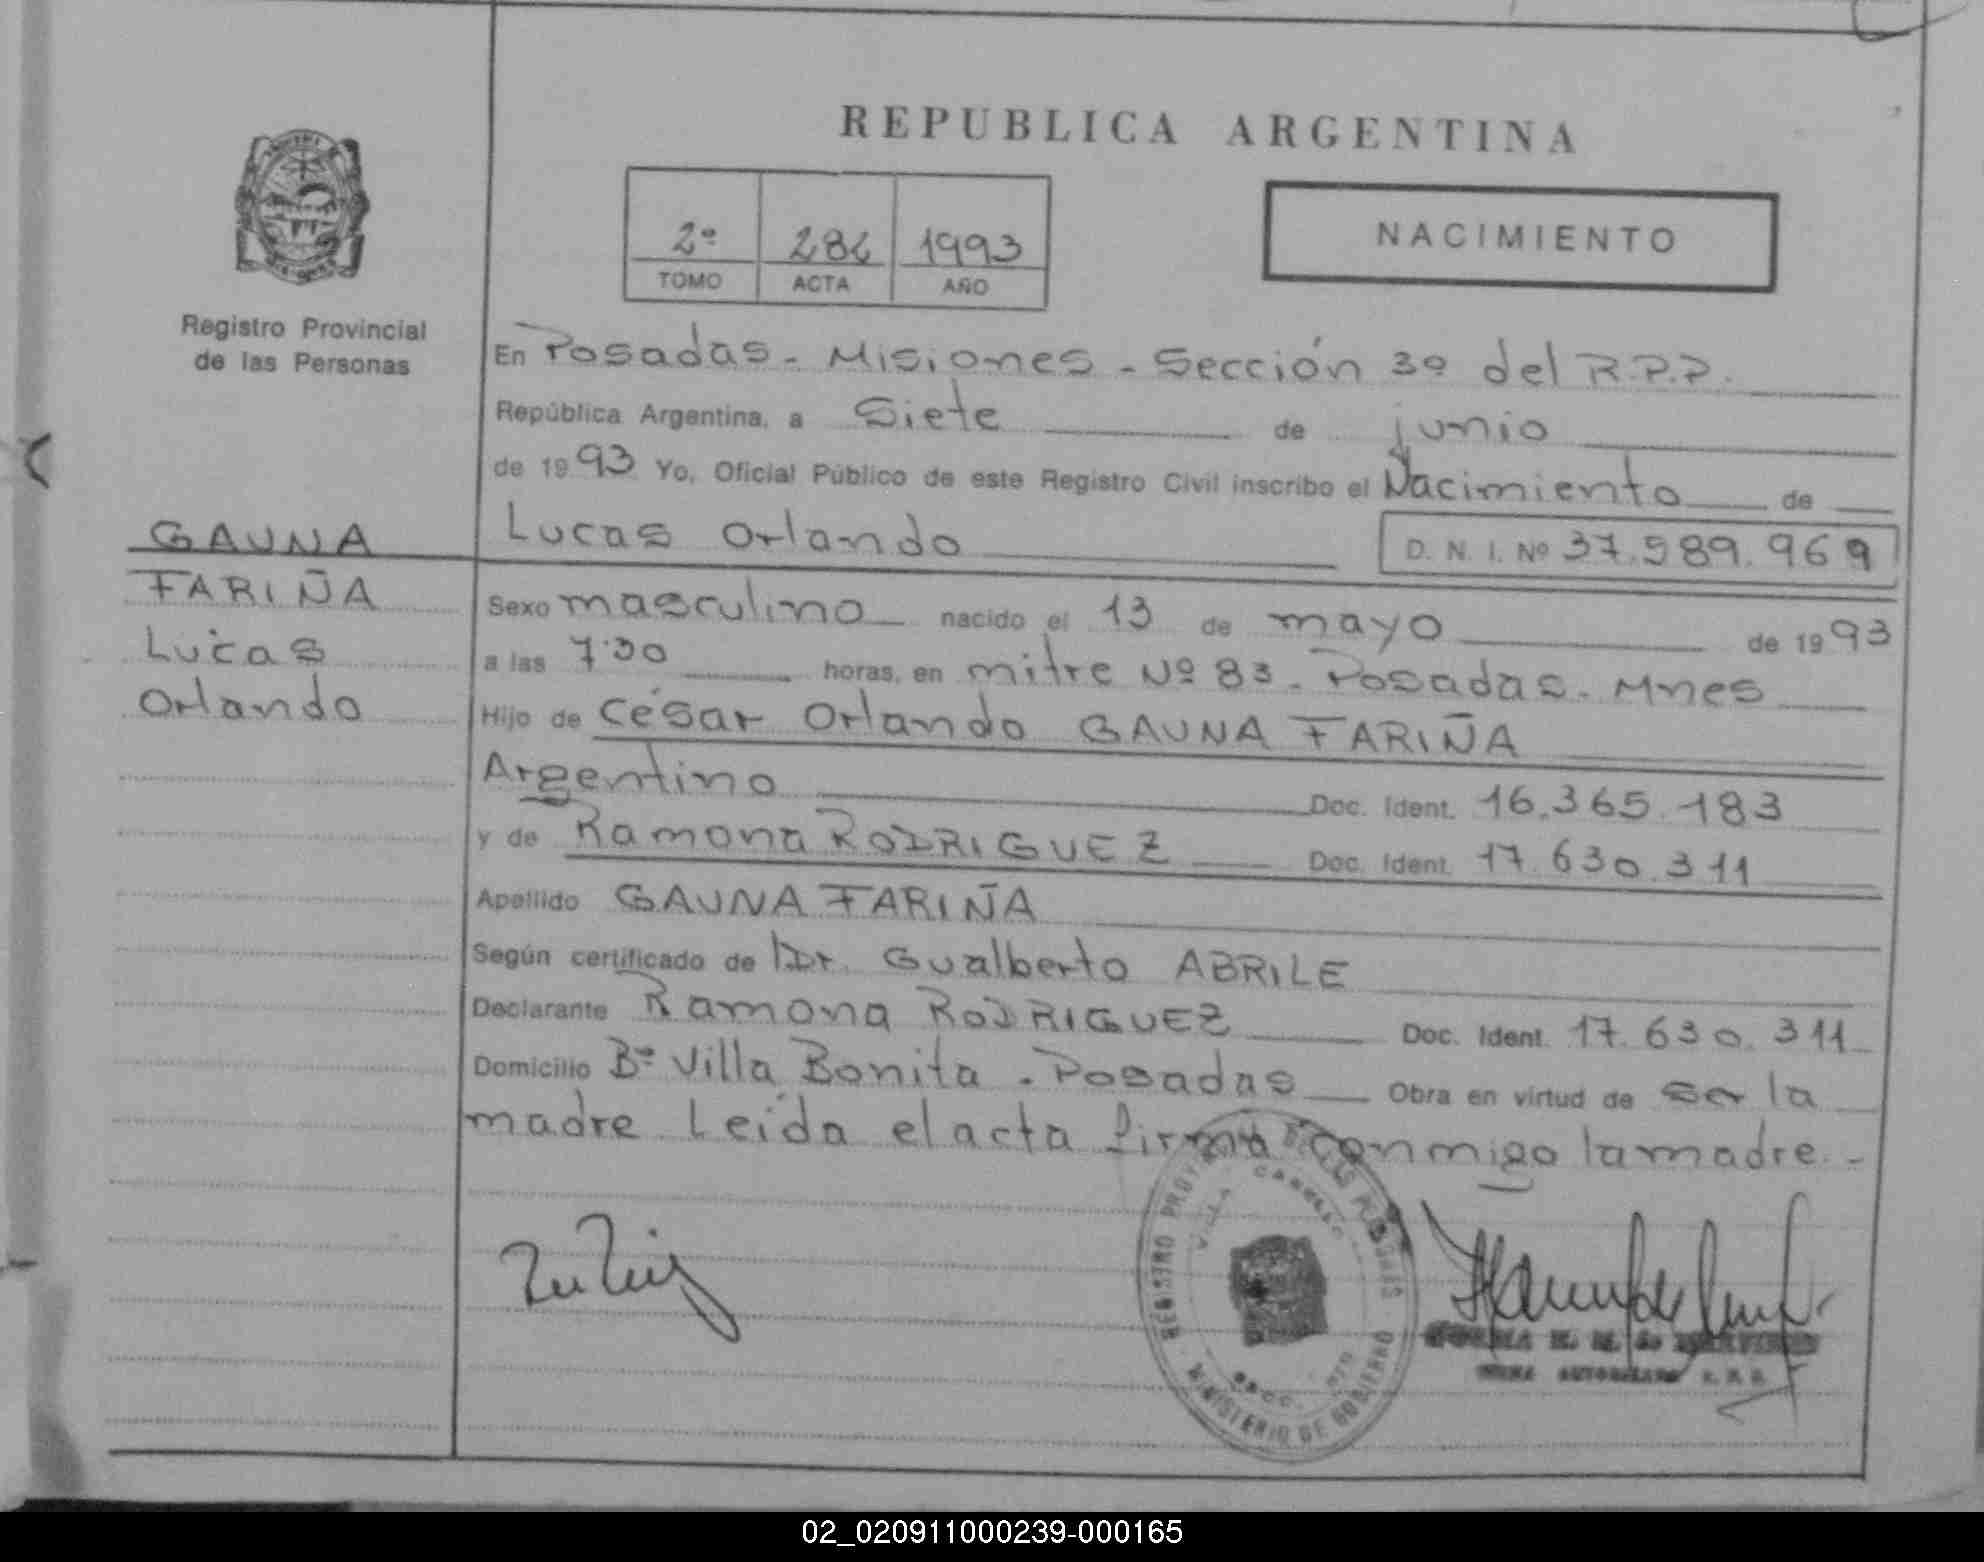 REPUBLICA ARGENTINA
2º 284 1993
TOMO ACTA AÑO
NACIMIENTO
Registro Provincial
de las Personas
En Posadas - Misiones - Sección 3º del R.P.P.
República Argentina, a Siete de junio
de 1993 Yo, Oficial Público de este Registro Civil inscribo el Nacimiento de
Lucas Orlando D. N. I. Nº 37.989.969
GAUNA
FARIÑA
Lucas
Orlando
Sexo masculino nacido el 13 de mayo de 1993
a las 7.30 horas, en mitre Nº 83 - Posadas - Mnes
Hijo de César Orlando GAUNA FARIÑA
Argentino Doc. Ident. 16.365.183
y de Ramona RODRIGUEZ Doc. Ident. 17.630.311
Apellido GAUNA FARIÑA
Según certificado de Dr. Gualberto ABRILE
Declarante Ramona RODRIGUEZ Doc. Ident. 17.630.311
Domicilio Bº Villa Bonita - Posadas Obra en virtud de ser la
madre Leída el acta firma conmigo la madre -
REGISTRO DE LAS
MINISTERIO DE GOBIERNO
02_020911000239-000165